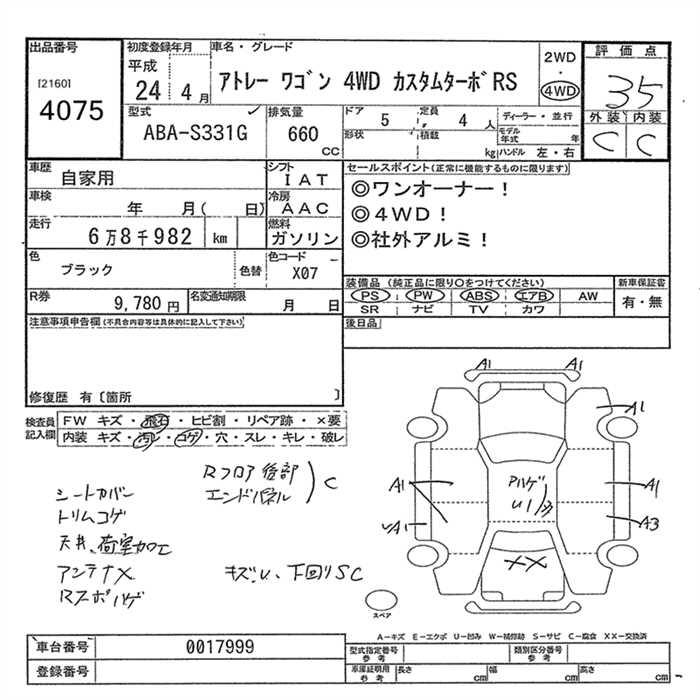 出品番号
[2160]
4075
初度登録年月
平成
24 4 月
車名・グレード
アトレー ワゴン 4WD カスタムターボRS
2WD
・
4WD
評価点
3.5
外装 内装
C C
型式
ABA-S331G
排気量
660
cc
ドア 5
定員 4 人
形状
積載 kg
ディーラー・並行
モデル年式 年
ハンドル 左・右
車歴
自家用
シフト
IAT
車検
年 月( 日)
冷房
AAC
走行
6万8千982 km
燃料
ガソリン
色
ブラック
色替
色コード
X07
R券
9,780 円
名変通知期限
月 日
セールスポイント(正常に機能するものに限ります)
◎ワンオーナー!
◎4WD!
◎社外アルミ!
装備品(純正品に限り○をつけてください)
PS PW ABS エアB AW
SR ナビ TV カワ
新車保証書
有・無
後日品
注意事項申告欄(不具合内容等は具体的に記入して下さい)
修復歴 有〔箇所 〕
検査員記入欄
FW キズ・飛石・ヒビ割・リペア跡・×要
内装 キズ・汚レ・コゲ・穴・スレ・キレ・破レ
Rフロア後部
エンドパネル
C
シートカバー
トリムコゲ
天井、荷室加工
アンテナX
Rスポハゲ
キズ、U、下回りSC
A1 A1
A1
A1
A1
A1
A3
Pハゲ
U1
XX
スペア
A-キズ E-エクボ U-凹み W-補修跡 S-サビ C-腐食 XX-交換済
車台番号 0017999
登録番号
型式指定番号
参考
類別区分番号
参考
車庫証明用
参考
長さ cm 幅 cm 高さ cm